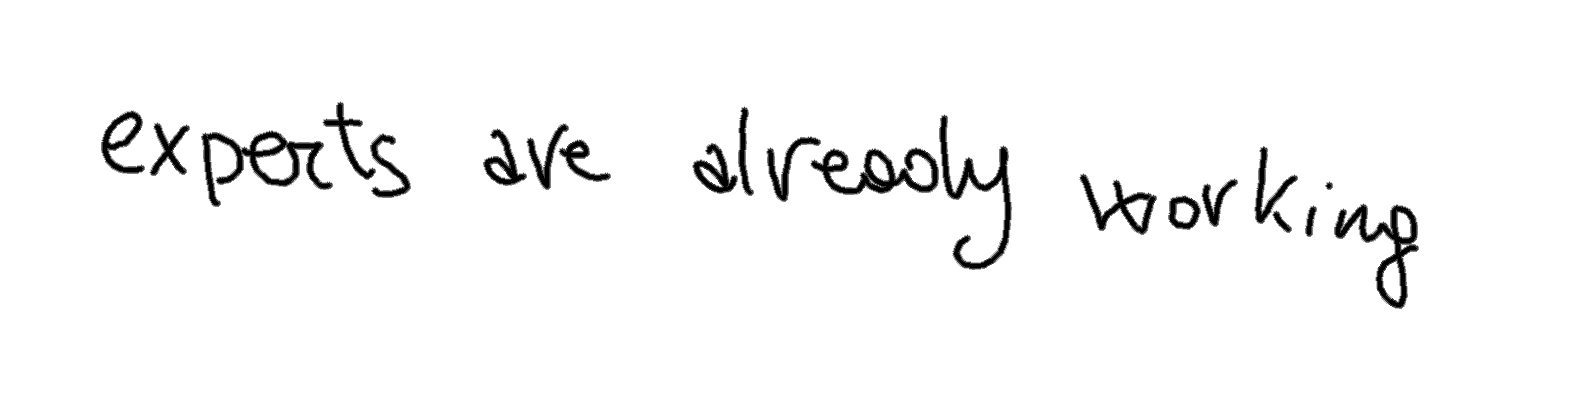 experts are already working